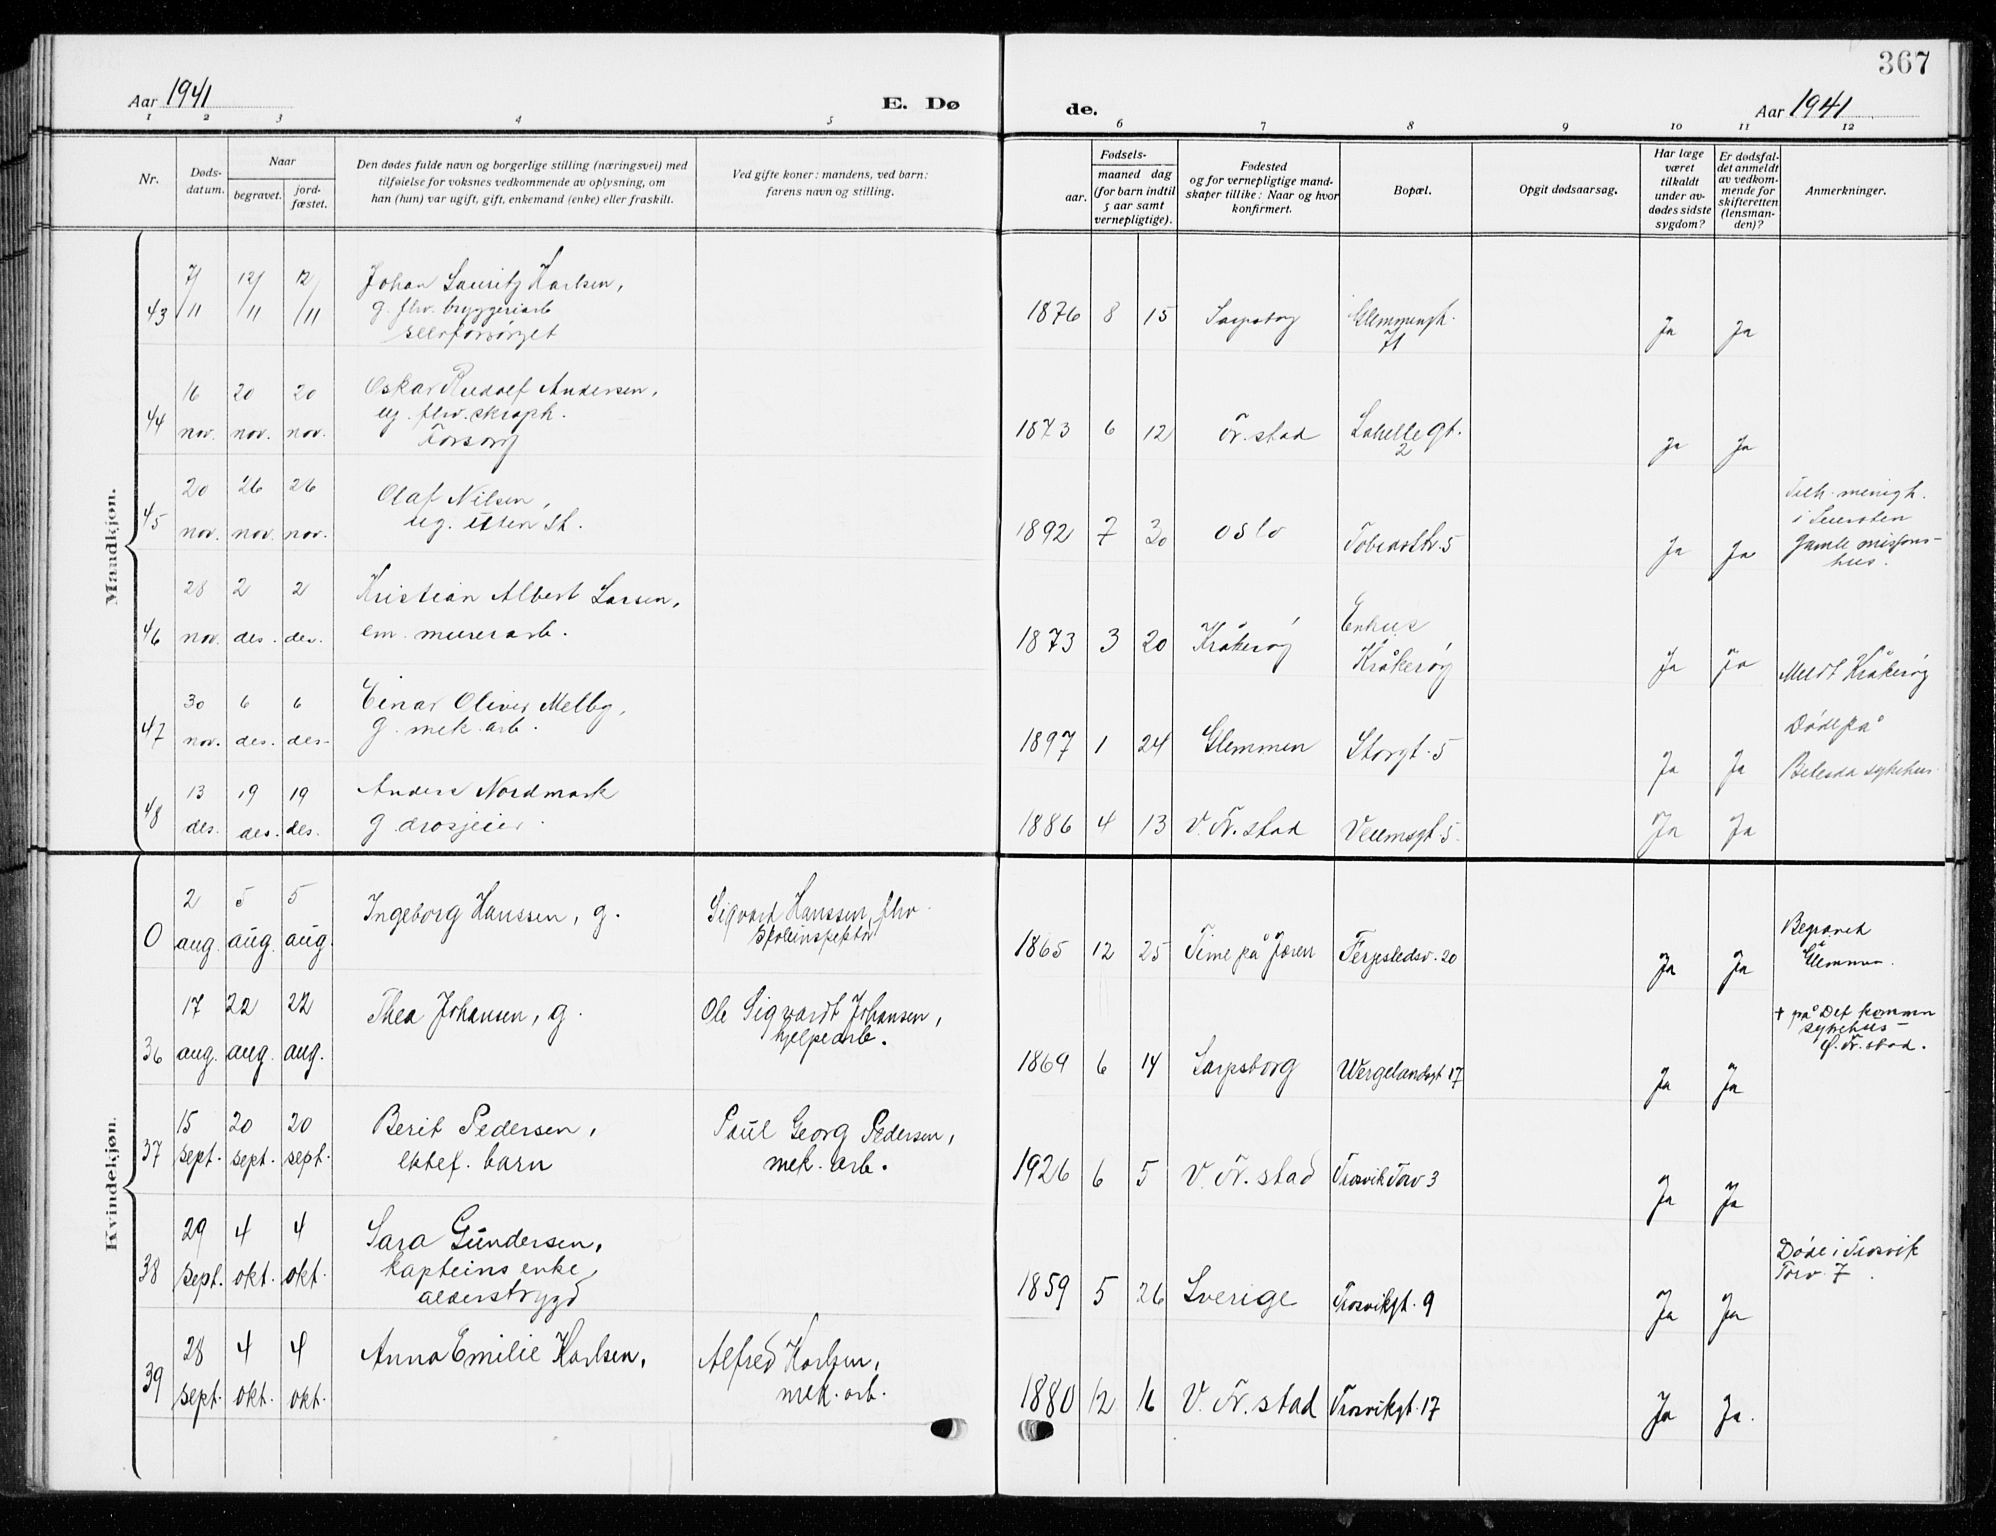 367
Aar 1941
E. Dø
de.
Aar 1941
1 2 3 4 5 6 7 8 9 10 11 12
Nr.
Døds-
datum.
Naar
begravet.
jord-
fæstet.
Den dødes fulde navn og borgerlige stilling (næringsvei) med
tilføielse for voksnes vedkommende av oplysning, om
han (hun) var ugift, gift, enkemand (enke) eller fraskilt.
Ved gifte koner: mandens, ved barn:
farens navn og stilling.
Fødsels-
aar.
maaned dag
(for barn indtil
5 aar samt
vernepligtige).
Fødested
og for vernepligtige mand-
skaper tillike: Naar og hvor
konfirmert.
Bopæl.
Opgit dødsaarsag.
Har læge
været
tilkaldt
under av-
dødes sidste
sygdom?
Er dødsfal-
det anmeldt
av vedkom-
mende for
skifteretten
(lensman-
den)?
Anmerkninger.
Mandkjøn.
43 7/11 12/11 12/11
Johan Lauritz Karlsen,
g. fhv. bryggeriarb
selvforsørget
1876 8 15 Sarpsborg Glemmengt.
71
Ja Ja
44 16 nov. 20 nov. 20 nov.
Oskar Rudolf Andersen,
ug. fhv. skraph.
Forsorg
1873 6 12 Fr. stad Lahellegt.
2
Ja Ja
45 20 nov. 26 nov. 26 nov.
Olaf Nilsen,
ug. uten st.
1892 7 30 Oslo 5
Ja Ja
Tilh. menigh.
i
Gamle misjons-
hus.
46 28 nov. 2 des. 2 des.
Kristian Albert Larsen,
em. murerarb.
1873 3 20 Kråkerøy Enhus
Kråkerøy
Ja Ja Meldt Kråkerøy
47 30 nov. 6 des. 6 des.
Einar Oliver Melby,
g. mek. arb.
1897 1 24 Glemmen Storgt. 5
Ja Ja
Døde på
Betesda sykehus
48 13 des. 19 des. 19 des.
Anders Nordmark
g. drosjeeier.
1886 4 13 V. Fr. stad Veumsgt 5.
Ja Ja
Kvindekjøn.
0 2 aug. 5 aug. 5 aug.
Ingeborg Hanssen, g.
Sigvart Hanssen, fhv.
skoleinspektør
1865 12 25 Time på Jæren Fergestedsv. 20
Ja Ja
Begravet
på
Glemmen.
36 17 aug. 22 aug. 22 aug.
Thea Johansen, g.
Ole Sigvardt Johansen,
hjelpearb.
1869 6 14 Sarpsborg Wergelandsgt 17
Ja Ja
† på Det kommun
sykehus -
Ø. Fr. stad.
37 15 sept. 20 sept. 20 sept.
Berit Pedersen,
ektef. barn
Paul Georg Pedersen,
mek. arb.
1926 6 5 V. Fr. stad Trosvik Torv 3
Ja Ja
38 29 sept. 4 okt. 4 okt.
Sara Gundersen,
kapteins enke,
alderstrygd
1859 5 26 Sverige Trosvikgt. 9
Ja Ja
Døde i Trosvik
Torv 7.
39 28 sept. 4 okt. 4 okt.
Anna Emilie Karlsen,
Alfred Karlsen,
mek. arb.
1880 12 16 V. Fr. stad Trosvikgt. 17
Ja Ja.